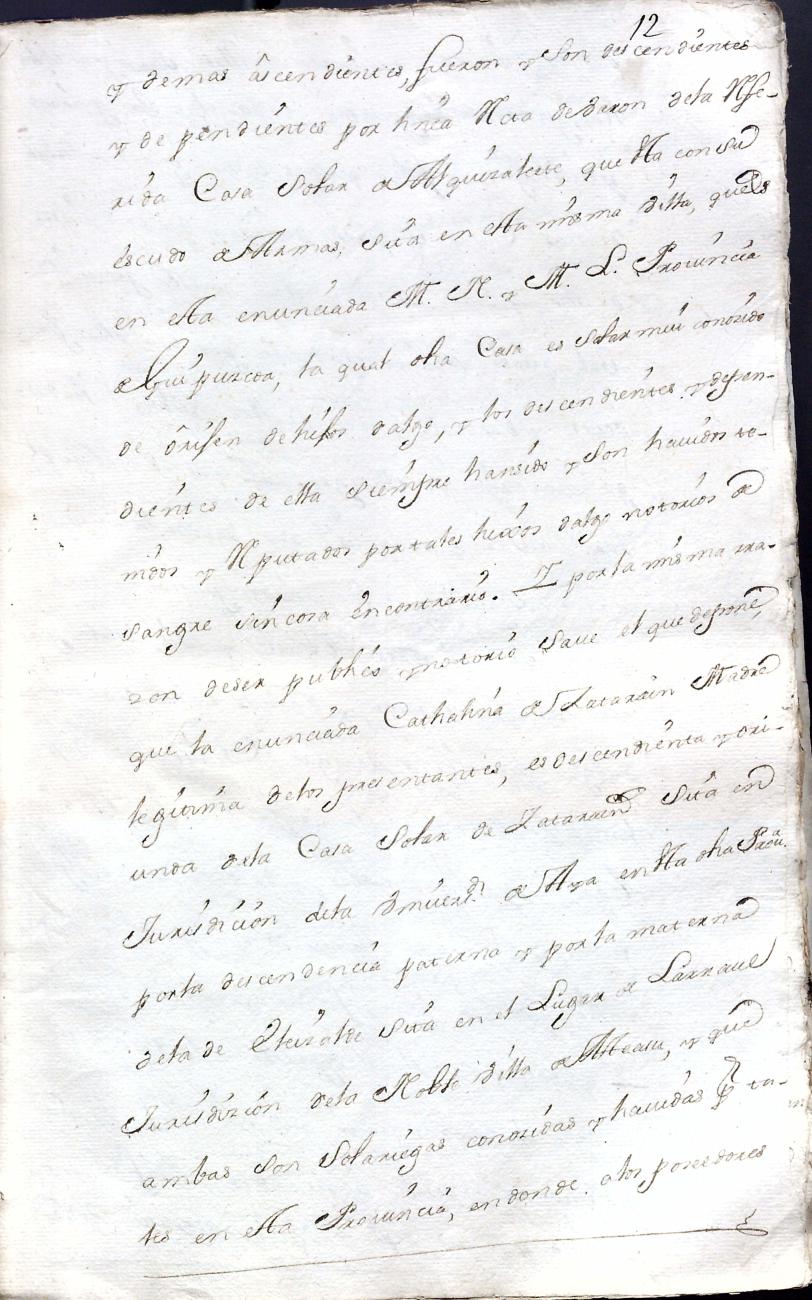 12
y demas âscendientes, fueron y son descendientes
y dependientes por linea Recta de Baron dela Refe-
rida Casa Solar de Alquizalete, que esta con su
escudo de Armas, sita en esta misma Villa, que es
en esta enunciada M. N. y M. L. Provincia
de Guipuzcoa, la qual dha Casa es Solar mui conozido
de Orijen de hijos dalgo, y los descendientes y depen-
dientes de ella siempre han sido y son havidos te-
nidos y Reputados por tales hixos dalgo notorios de
sangre sin cosa en contrario. Y por la misma rra-
zon deser publico y notorio save el que depone,
que la enunciada Cathalina de Zatarain Madre
legitima delos presentantes, es descendienta y ori-
unda dela Casa Solar de Zatarain sita en
Jurisdicion dela Vniversd. de Aya en esta dha Prova.
porla descendencia paterna y por la materna
dela de Eleizalde sita en el Lugar de Larraul
Jurisdizion dela Noble Villa de Asteasu, y que
ambas son Solariegas conozidas y havidas por ta-
les en esta Provincia, en donde a los poseedores